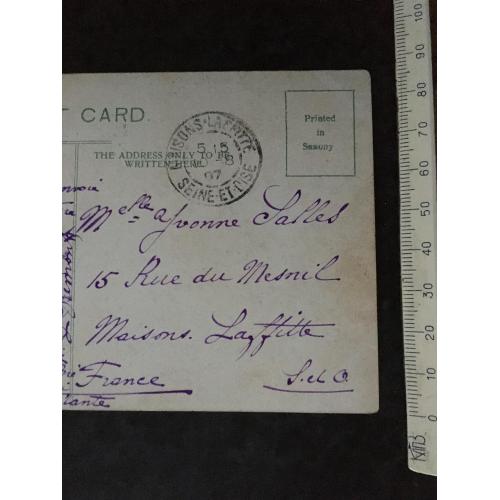 T CARD.
THE ADDRESS ONLY TO BE
WRITTEN HERE.
Printed
in
Saxony
MAISONS-LAFFITTE
5 15
8
07
SEINE-ET-OISE
Melle Yvonne Salles
15 Rue du Mesnil
Maisons. Laffitte
France
S. et O.
0 10 20 30 40 50 60 70 80 90 100